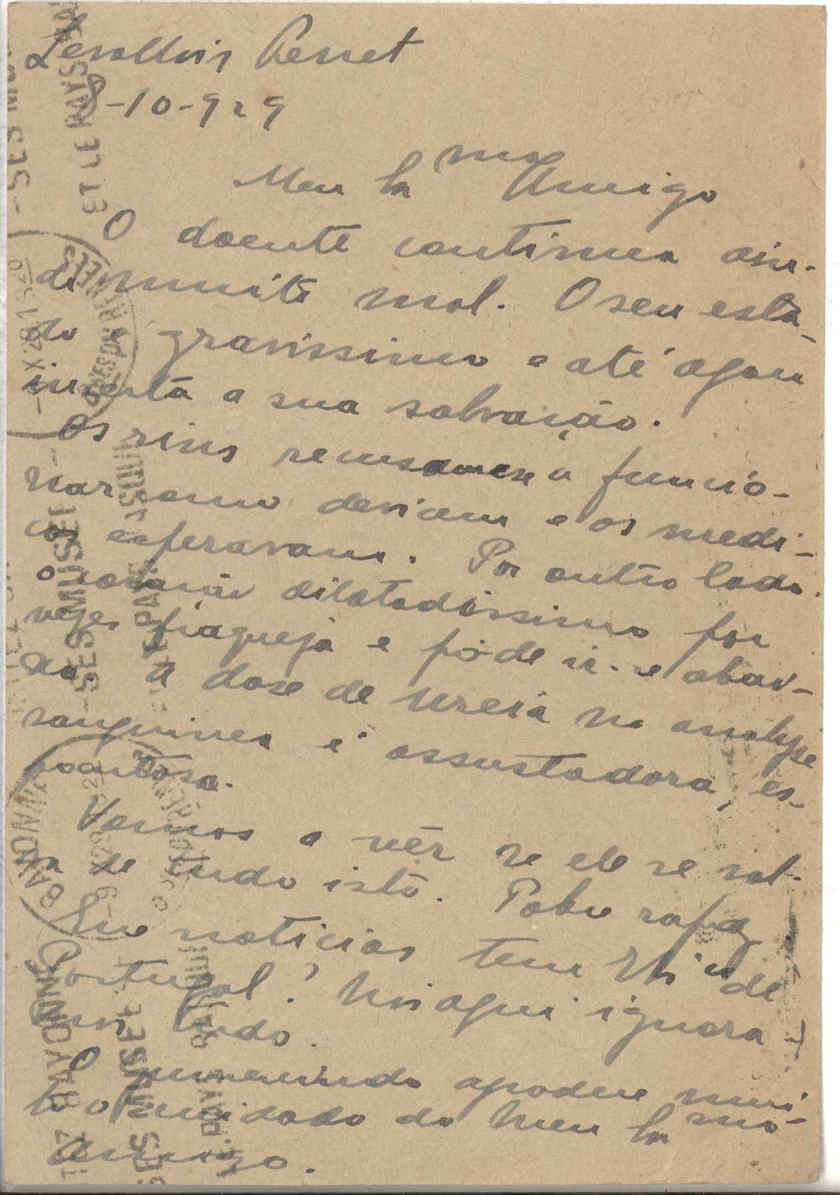 Levallois Perret
8-10-929
Meu Car.mo Amigo
O doente continua ain-
da muito mal. O seu esta-
do gravissimo e até agora
incerta a sua salvação.
Os rins recusam a funcio-
nar como deviam e os medi-
cos esperavam. Por outro lado
o coração dilatadissimo por
vezes fraqueja e póde ir-se abai-
xo. A dose de ureia na analyse
sanguinea é assustadora, es-
pantosa.
Vamos a vêr se ele se sal-
va de tudo isto. Pobre rapaz
Que noticias tem V. de
Portugal? Nós aqui ignora
mos tudo.
O agradece mui-
to o cuidado do meu Car.mo
Amigo.
BAYONNE
SES MUSÉES
ET LE PAYS BASQUE
BASSES PYRENEES